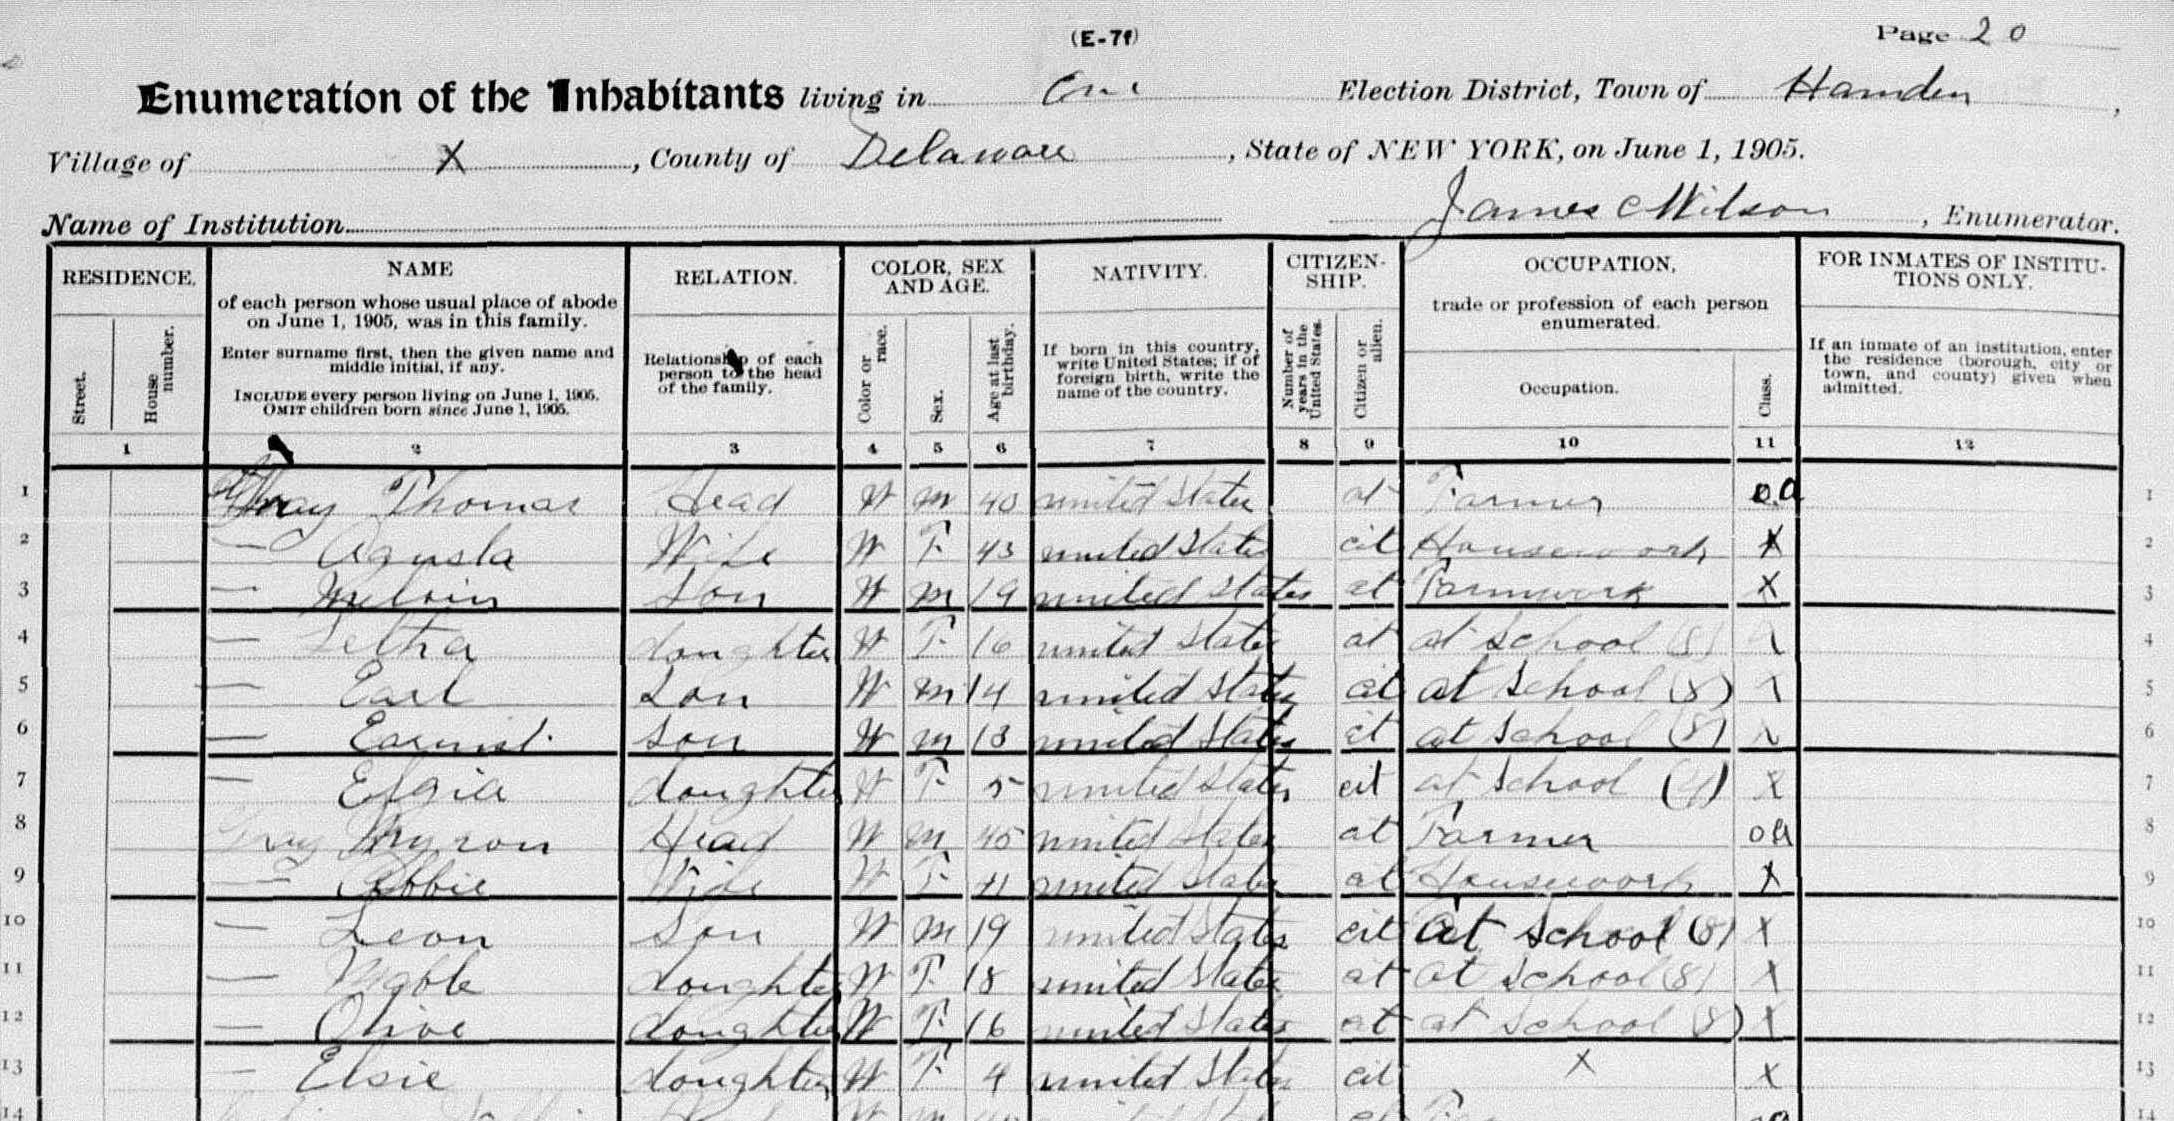 (E-71) Page 20
Enumeration of the Inhabitants living in One Election District, Town of Hamden,
Village of X, County of Delaware, State of NEW YORK, on June 1, 1905.
Name of Institution James C Wilson, Enumerator.
RESIDENCE. NAME RELATION. COLOR, SEX AND AGE. NATIVITY. CITIZENSHIP. OCCUPATION, FOR INMATES OF INSTITUTIONS ONLY.
Street. House number. of each person whose usual place of abode on June 1, 1905, was in this family.
Enter surname first, then the given name and middle initial, if any.
INCLUDE every person living on June 1, 1905.
OMIT children born since June 1, 1905.
Relationship of each person to the head of the family.
Color or race. Sex. Age at last birthday.
If born in this country, write United States; if of foreign birth, write the name of the country.
Number of years in the United States. Citizen or alien.
trade or profession of each person enumerated.
Occupation. Class.
If an inmate of an institution, enter the residence (borough, city or town, and county) given when admitted.
1 2 3 4 5 6 7 8 9 10 11 12
1 Gray Thomas Head W M 40 united States cit Farmer oa 1
2 — Agusta Wife W F 43 united States cit Housework X 2
3 — Melvin Son W M 19 united States cit Farmwork X 3
4 — Letha daughter W F 16 united States cit at School (8) 4
5 — Earl Son W M 14 united States cit at School (8) 5
6 — Earnist Son W M 13 united States cit at School (8) X 6
7 — daughter W F 5 united States cit at School X 7
8 Gray Myron Head W M 45 united States cit Farmer oa 8
9 — Abbie Wife W F 41 united States cit Housework X 9
10 — Leon Son W M 19 united States cit at School (8) X 10
11 — Mable daughter W F 18 united States cit at School (8) X 11
12 — Olive daughter W F 16 united States cit at School (8) X 12
13 — Elsie daughter W F 4 united States cit X X 13
14 14